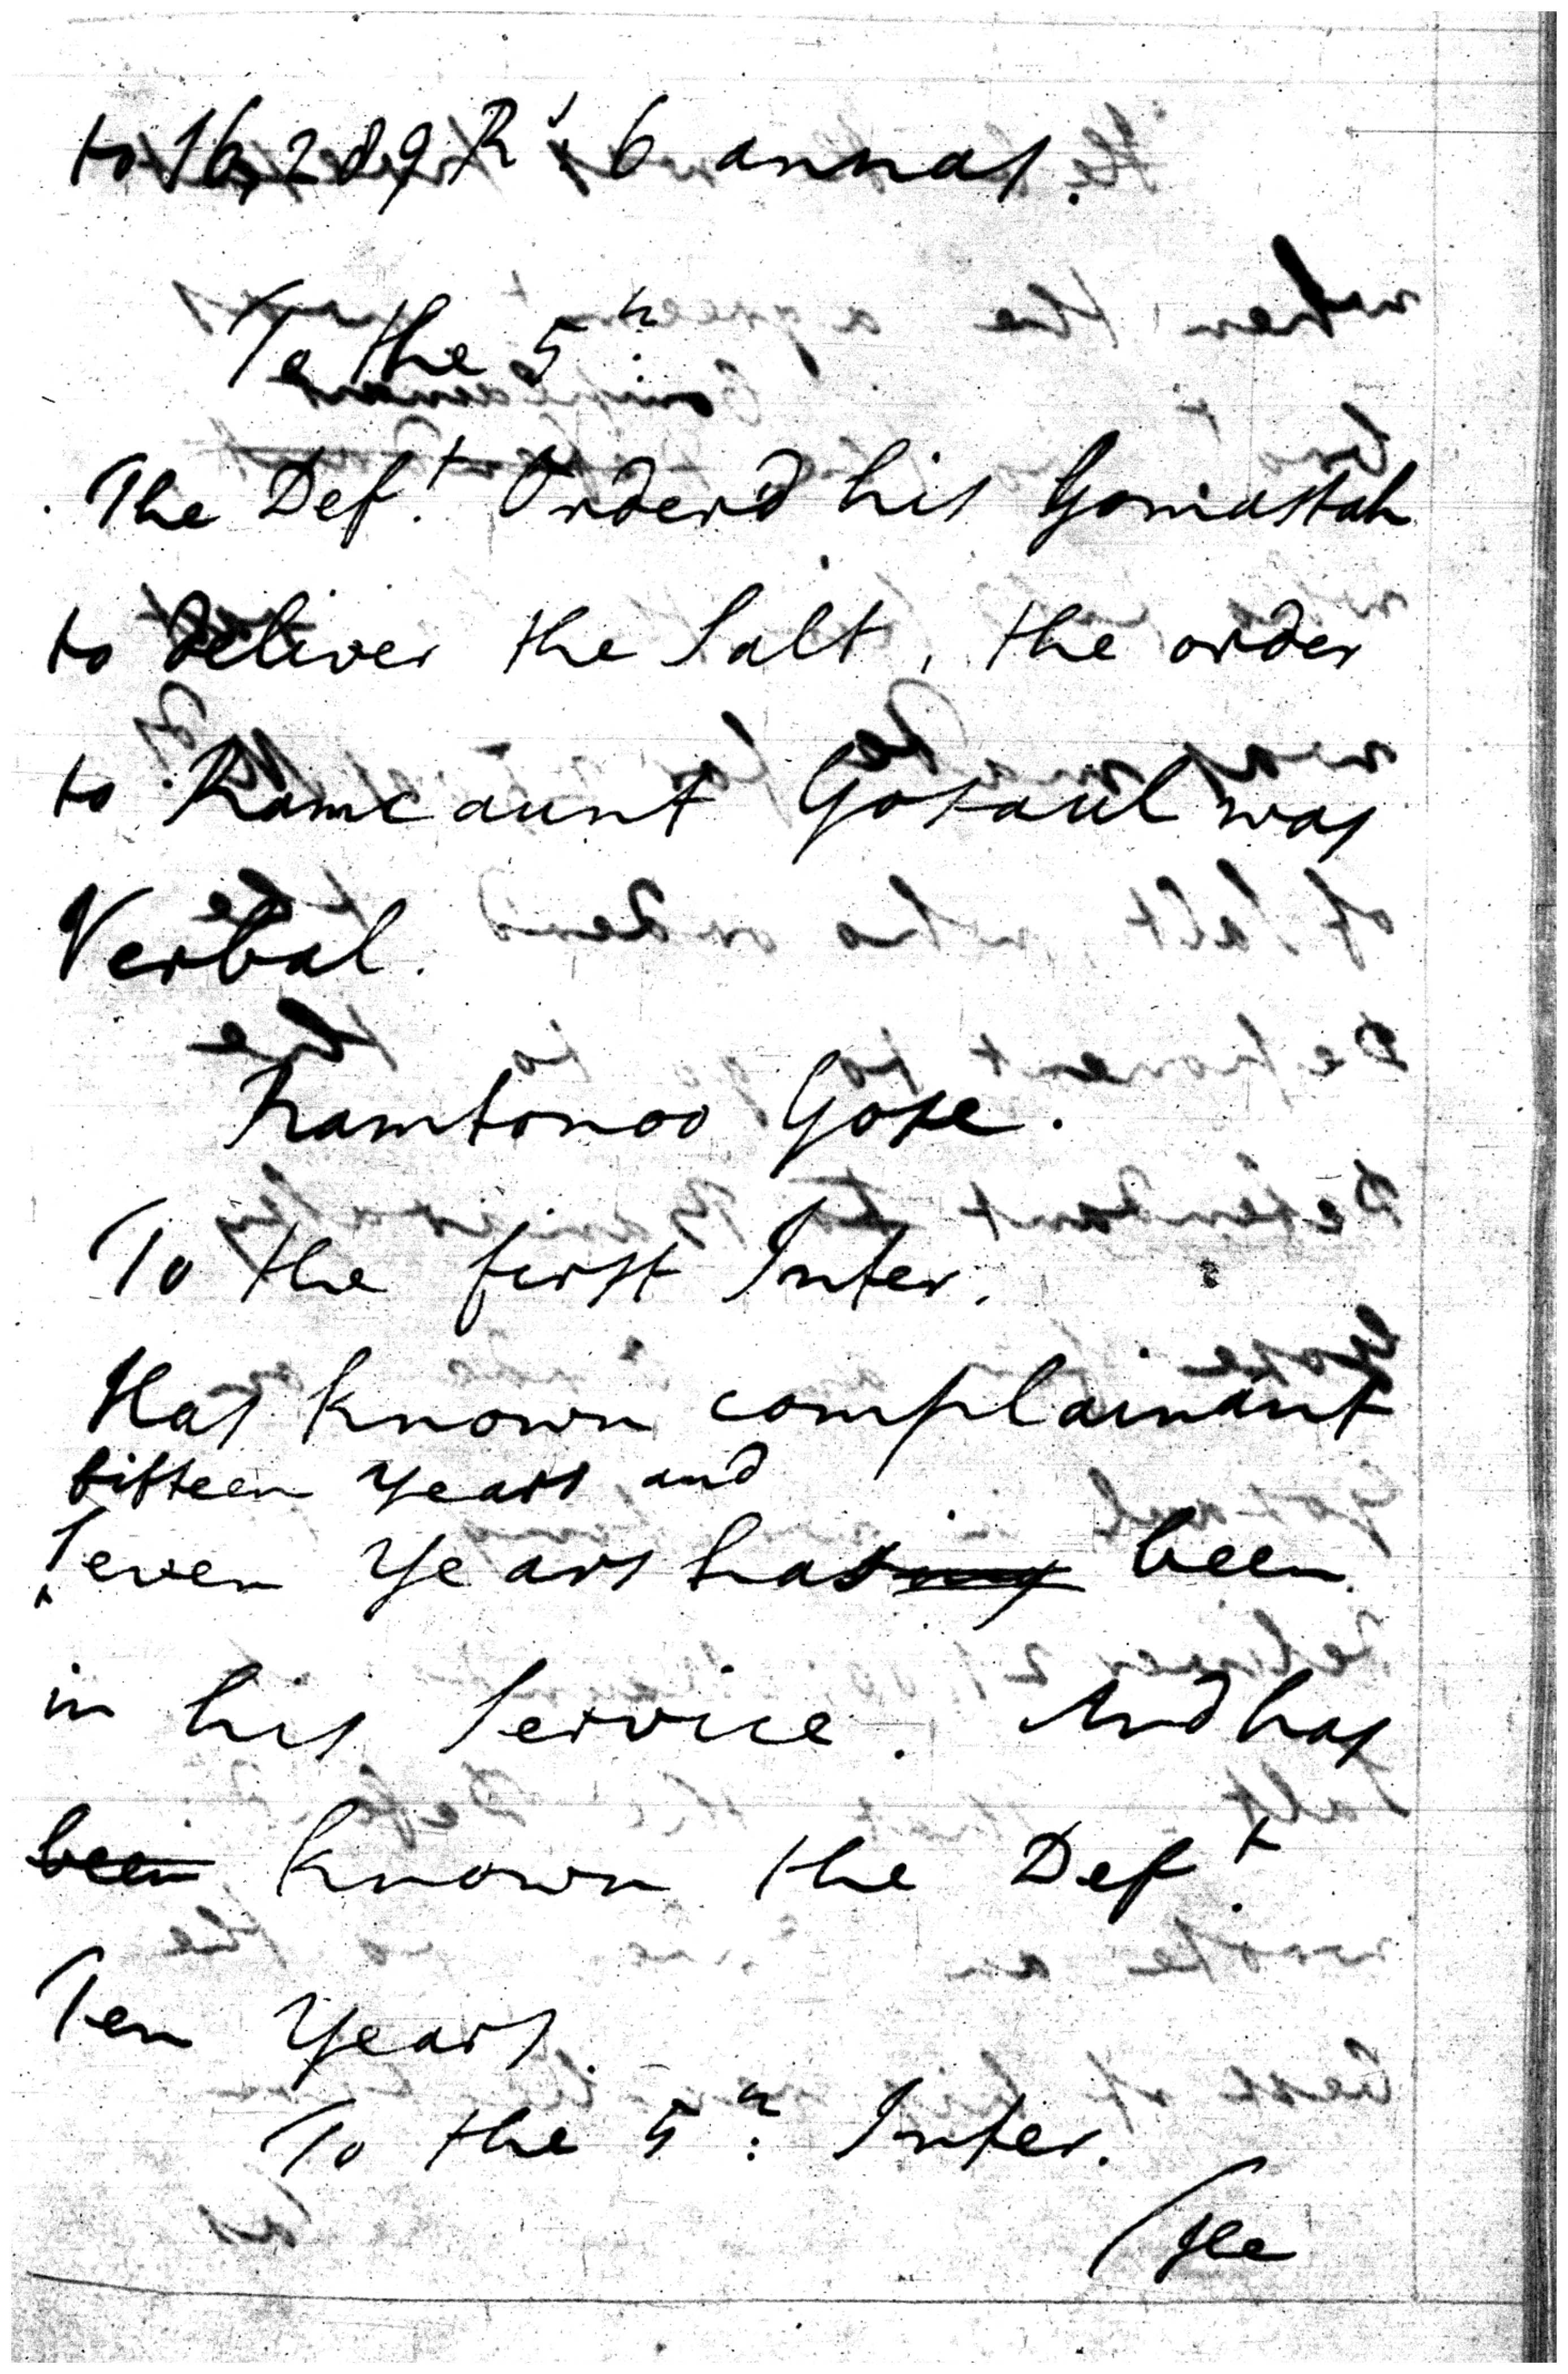 to 16,289 Rs 6 annas.
To the 5th
The Deft. Orderd his Gomastah
to deliver the Salt, the order
to Ramcaunt Gosaul was
Verbal.
Ramtonoo Gose.
To the first Inter.
Has known complainant
fifteen years and
Seven Years has been
in his Service. And has
been known the Deft.
Ten Years.
To the 5th: Inter.
The